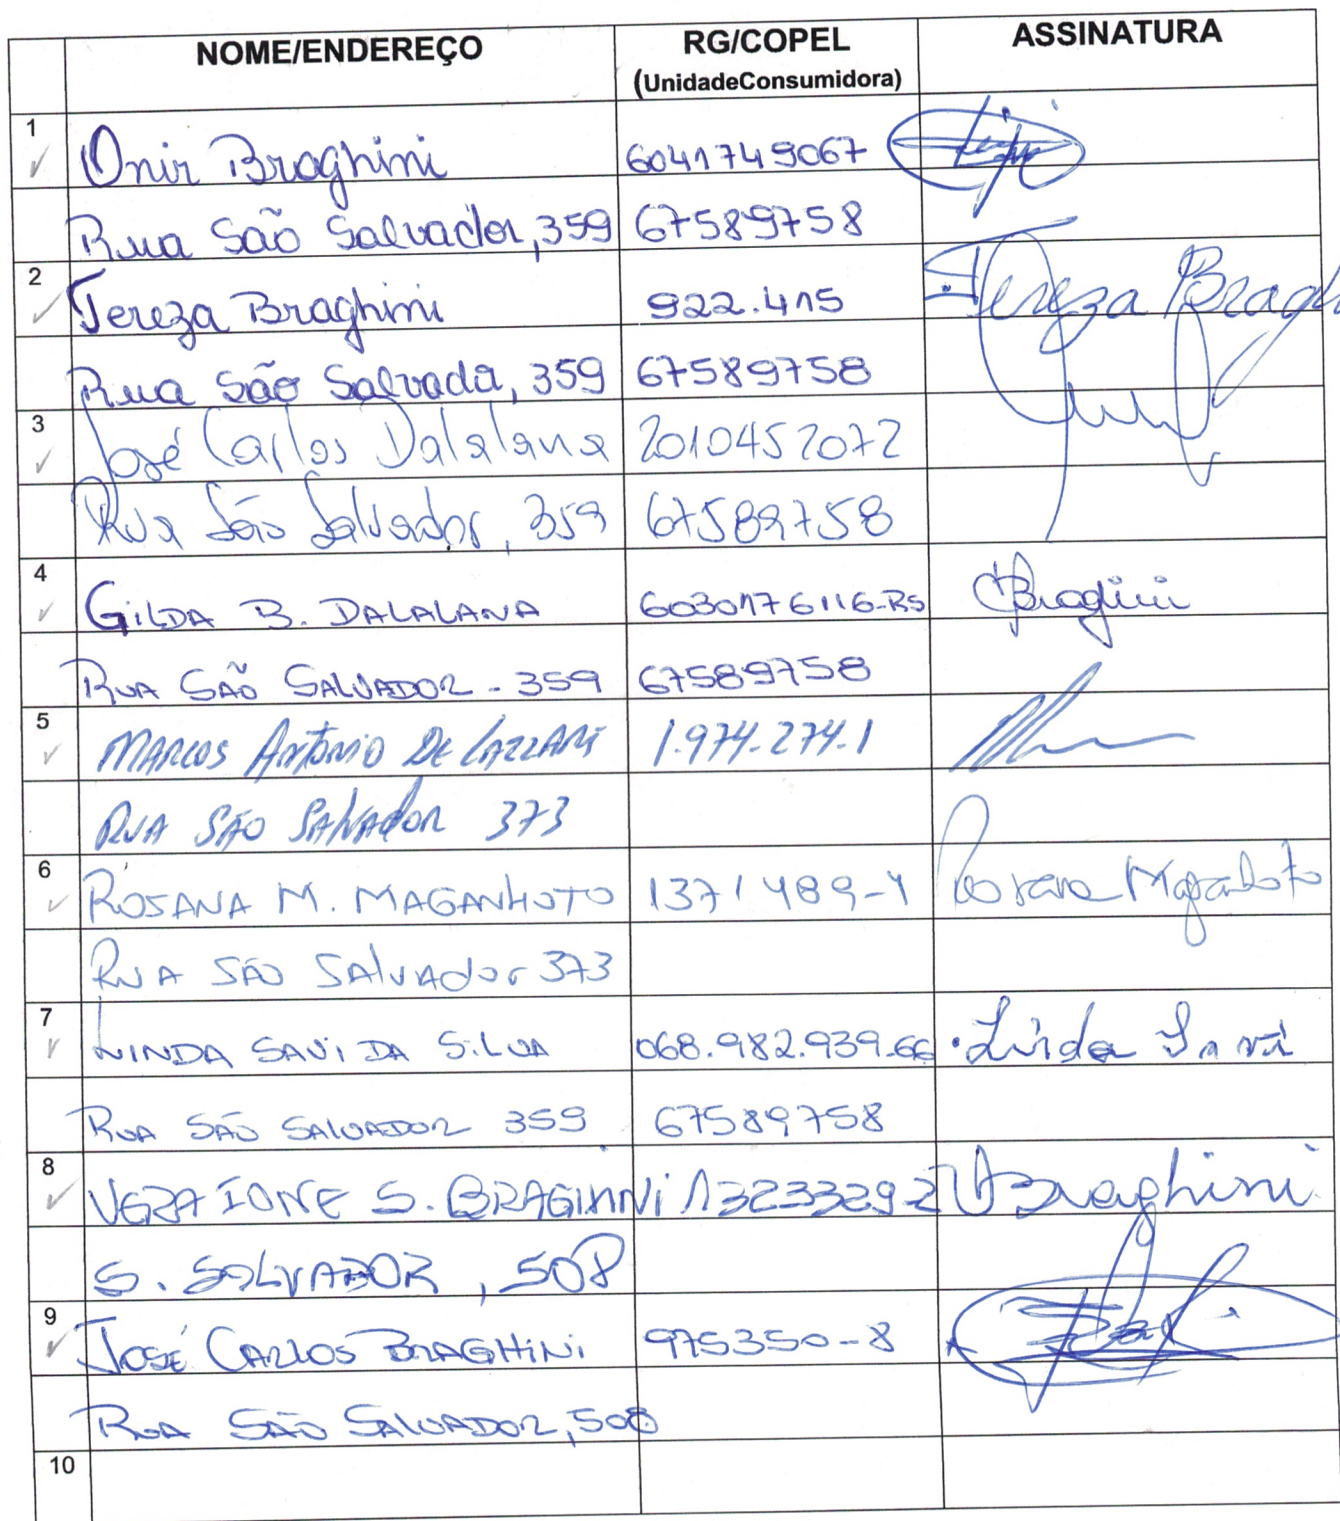 NOME/ENDEREÇO RG/COPEL ASSINATURA
(UnidadeConsumidora)
1 Onir Braghini 6041749067
Rua São Salvador, 359 67589758
2 Tereza Braghini 922.415 Tereza Bragh
Rua São Salvada, 359 67589758
3 José Carlos Dalalana 2010452072
Rua São Salvador, 359 67589758
4 GILDA B. DALALANA 6030176116-RS Bragini
RUA SÃO SALVADOR - 359 67589758
5 MARCOS ANTONIO DE LAZZARI 1.974.274.1
RUA SÃO SALVADOR 373
6 ROSANA M. MAGANHOTO 1371489-4 Rosana Maganhoto
RUA SÃO SALVADOR 373
7 LINDA SAVI DA SILVA 068.982.939.66 Linda Savi
RUA SÃO SALVADOR 359 67589758
8 VERA IONE S. BRAGINNI 13233292 VBraghini
S. SALVADOR, 508
9 JOSÉ CARLOS BRAGHINI 975350-8
RUA SÃO SALVADOR, 508
10